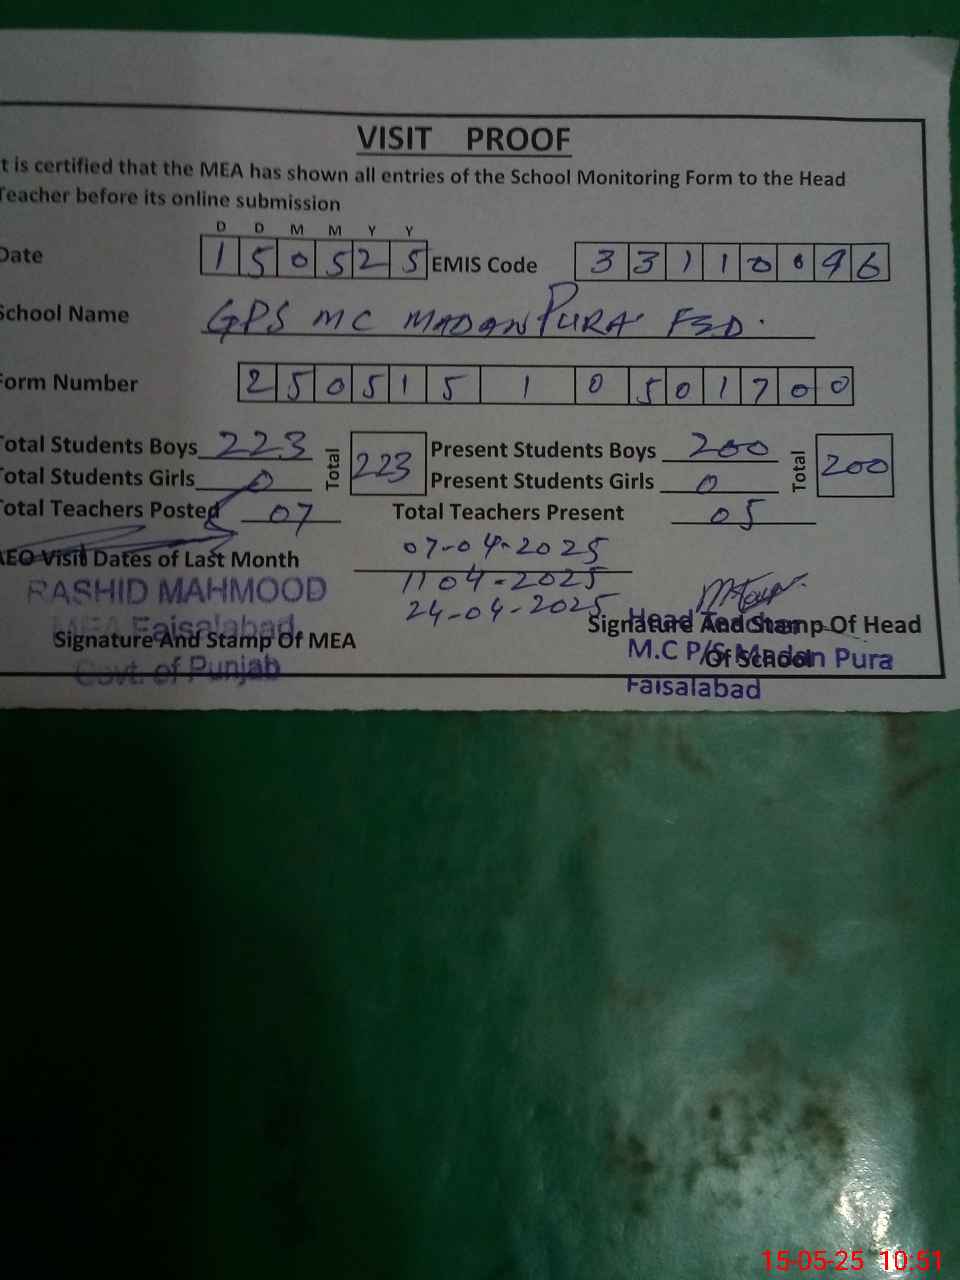 VISIT PROOF
t is certified that the MEA has shown all entries of the School Monitoring Form to the Head
Teacher before its online submission
D D M M Y Y
Date 1 5 0 5 2 5 EMIS Code 3 3 1 1 0 0 9 6
School Name GPS MC MADAN PURA FSD.
Form Number 2 5 0 5 1 5 1 0 5 0 1 7 0 0
Total Students Boys 223 Total 223 Present Students Boys 200 Total 200
Total Students Girls 0 Present Students Girls 0
Total Teachers Posted 07 Total Teachers Present 05
AEO Visit Dates of Last Month 07-04-2025
11 04-2025
24-04-2025
RASHID MAHMOOD
MEA Faisalabad
Govt. of Punjab
Signature And Stamp Of MEA
Signature And Stamp Of Head
Of School
Head Teacher
M.C P/S Madan Pura
Faisalabad
15-05-25 10:51